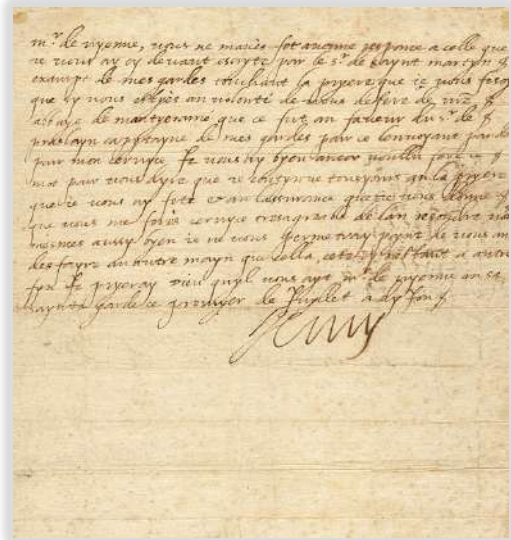 mr. de vyenne, vous ne mavés fet aucune responce a celle que
ie vous ay cy devant escryte par le sr. de saynt martyn
exampt de mes gardes touchant la pryere que ie vous fesoy
que sy vous estyés an volonté de vous defere de vre
abbaye de ce fut an faveur du sr. de
praslayn cappytayne de mes gardes par ce
pour mon servyce Ie vous ay byen ancor voullu fere ce
mot pour vous dyre que ie contynue tousyours an la pryere
que ie vous ay fete & an lassurance que ie vous donne
que vous me ferés servyce tres agreable de lan
mesmes aussy byen ie ne vous permetray poynt de vous an
desfayre an autre mayn que cella,
fyn Ie pryeray dieu quyl vous ayt mr. de vyenne an sa
saynte garde ce premyer de Iuyllet a
Henry